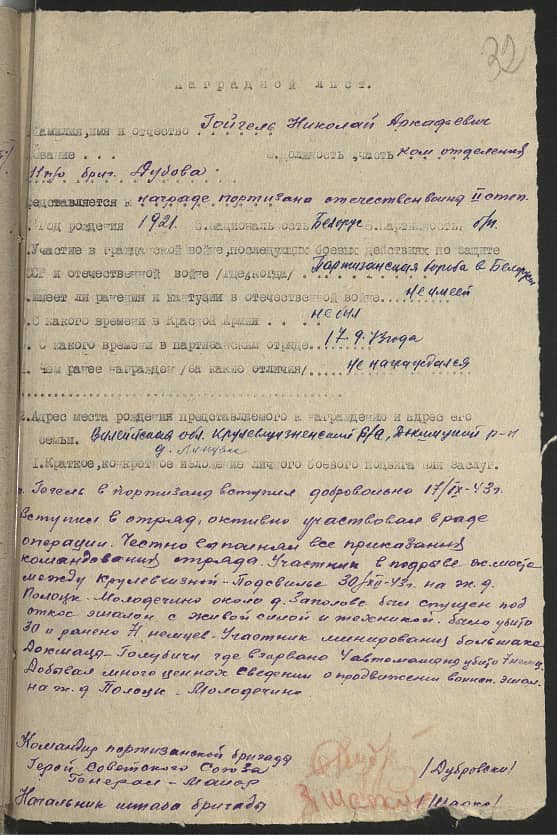 32
Наградной лист.
Фамилия, имя и отчество . . . . . Гойгель Николай Аркадьевич
Звание . . . 2. Должность, часть ком отделения
П/о бриг. Дубова.
Представляется к награде партизана отечествен воина II степ.
Год рождения 1921. 5. Национальность Белорус 6. Партийность, б/п.
Участие в гражданской войне, последующих боевых действиях по защите
СССР и отечественной войне /где, когда/ . . Партизанская борьба в Белорус
Имеет ли ранения и контузии в отечественной войне не имеет
С какого времени в Красной Армии . . . . не был
. С какого времени в партизанском отряде. . 17.9.43 года
. Чем ранее награжден /за какие отличия/. . не награждался
. Адрес места рождения представляемого к награждению и адрес его
семьи. Вилейская обл. Крулевщизненский с/с, Докшицкий р-н
д.
1. Краткое, конкретное изложение личного боевого подвига или заслуг.
т. Гогель в партизаны вступил добровольно 17/IX-43 г.
Вступил в отряд, активно участвовал в ряде
операции. Честно выполнял все приказания
командования отряда. Участник в подрыве ж.моста
между Крулевшизной-Подсвилье 30/XII-43 г. на ж.д.
Полоцк-Молодечино около д. Заполове был спущен под
откос эшалон с живой силой и техникой. было убито
30 и ранено немцев. Участник минирования большака
Докшицы-Голубичи где взорвано 1 автомашина убито 7 немец.
Добывал много ценнах сведении о продвижении воинск. эшал.
на ж.д Полоцк-Молодечино
Командир партизанской бригады
Герой Советского Союза
Генерал-Майор /Дубровски/
Начальник штаба бригады